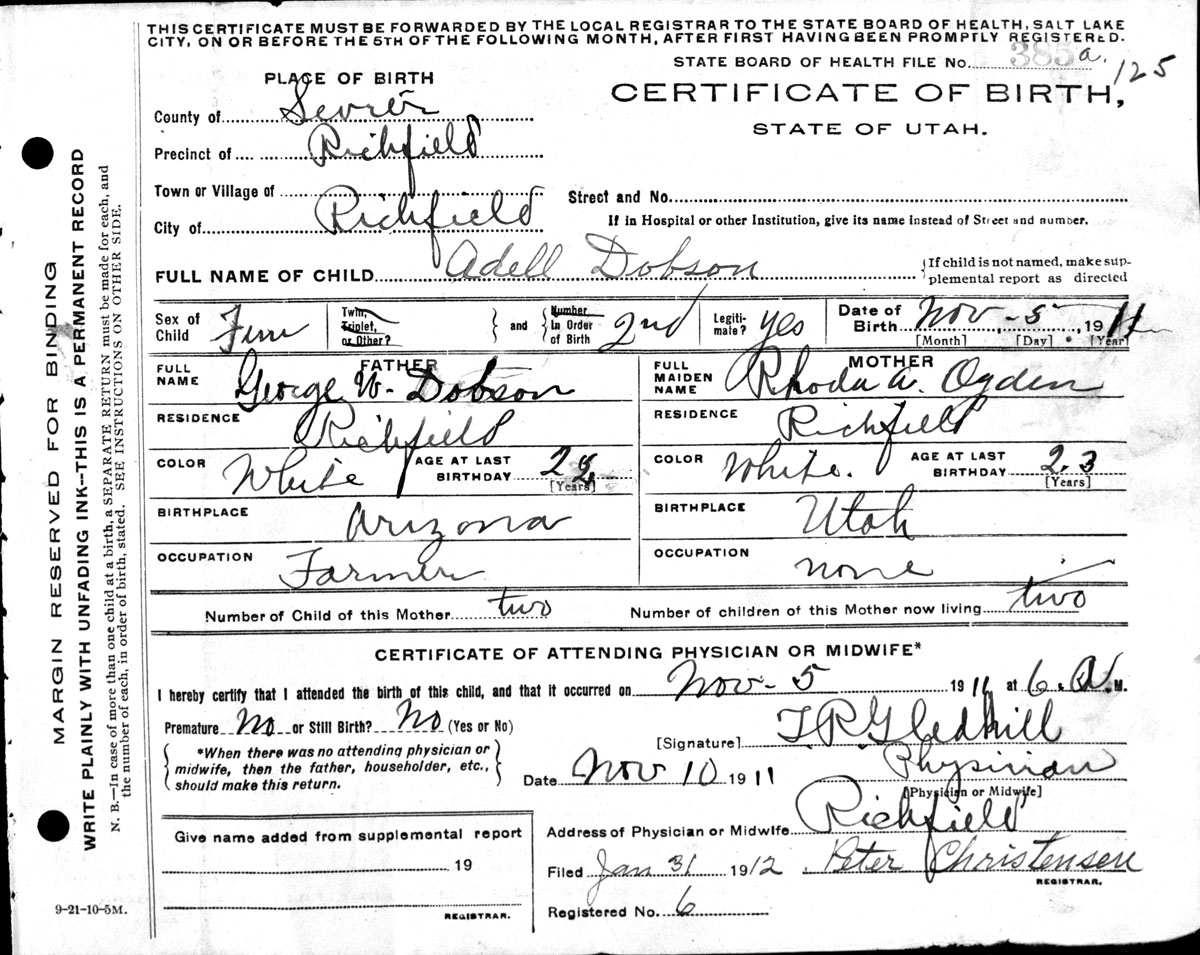 THIS CERTIFICATE MUST BE FORWARDED BY THE LOCAL REGISTRAR TO THE STATE BOARD OF HEALTH, SALT LAKE
CITY, ON OR BEFORE THE 5TH OF THE FOLLOWING MONTH, AFTER FIRST HAVING BEEN PROMPTLY REGISTERED.
STATE BOARD OF HEALTH FILE No. 385 a. 125
PLACE OF BIRTH
CERTIFICATE OF BIRTH,
STATE OF UTAH.
County of Sevier
Precinct of Richfield
Town or Village of
Street and No.
City of Richfield
If in Hospital or other Institution, give its name instead of Street and number.
FULL NAME OF CHILD Adell Dobson {If child is not named, make sup-
plemental report as directed
Sex of Child Fem
Twin, Triplet, or Other? } and { Number In Order of Birth 2nd
Legiti-mate? yes
Date of Birth Nov - 5, 1911
[Month] [Day] [Year]
FATHER
FULL NAME George W. Dobson
RESIDENCE Richfield
COLOR White AGE AT LAST BIRTHDAY
[Years]
BIRTHPLACE Arizona
OCCUPATION Farmer
MOTHER
FULL MAIDEN NAME Rhoda A. Ogden
RESIDENCE Richfield
COLOR White. AGE AT LAST BIRTHDAY 23
[Years]
BIRTHPLACE Utah
OCCUPATION none
Number of Child of this Mother two Number of children of this Mother now living two
CERTIFICATE OF ATTENDING PHYSICIAN OR MIDWIFE*
I hereby certify that I attended the birth of this child, and that it occurred on Nov - 5 1911 at 6. A. M.
Premature No or Still Birth? No (Yes or No)
{ *When there was no attending physician or
midwife, then the father, householder, etc.,
should make this return. }
[Signature] T R Gledhill
Date Nov 10 1911 Physician
[Physician or Midwife]
Address of Physician or Midwife Richfield
Filed Jan 31 1912 Peter Christensen
REGISTRAR.
Registered No. 6
Give name added from supplemental report
19
REGISTRAR.
9-21-10-5M.
MARGIN RESERVED FOR BINDING
WRITE PLAINLY WITH UNFADING INK--THIS IS A PERMANENT RECORD
N. B.—In case of more than one child at a birth, a SEPARATE RETURN must be made for each, and
the number of each, in order of birth, stated. SEE INSTRUCTIONS ON OTHER SIDE.